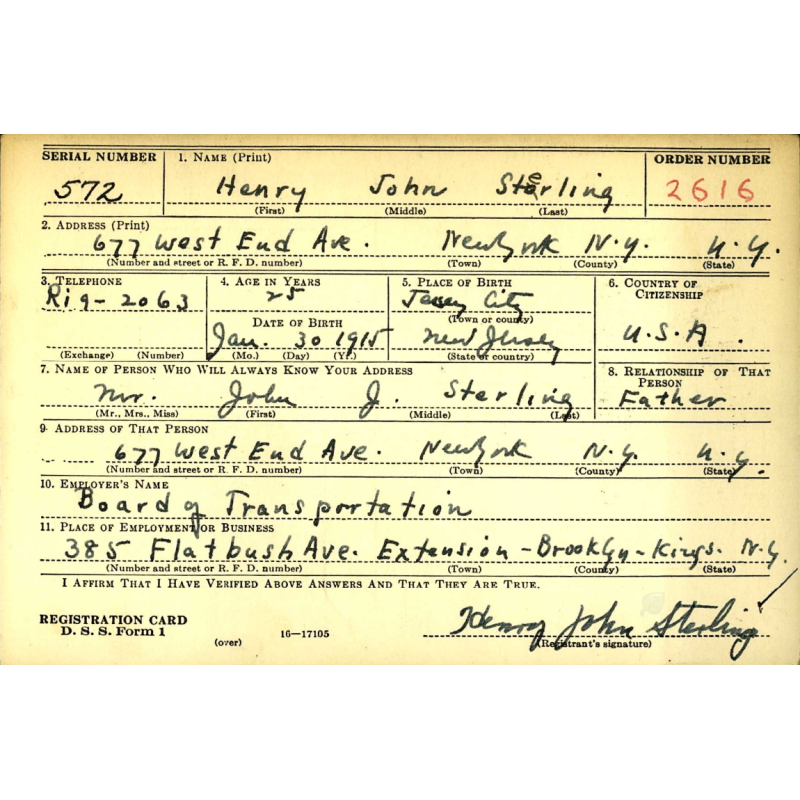 SERIAL NUMBER 1. NAME (Print) ORDER NUMBER
572 Henry John Sterling 2616
(First) (Middle) (Last)
2. ADDRESS (Print)
677 West End Ave. New York N.Y. N.Y.
(Number and street or R. F. D. number) (Town) (County) (State)
3. TELEPHONE 4. AGE IN YEARS 5. PLACE OF BIRTH 6. COUNTRY OF CITIZENSHIP
Riq-2063 25 Jersey City
(Town or county)
DATE OF BIRTH
Jan. 30 1915 New Jersey U.S.A.
(Exchange) (Number) (Mo.) (Day) (Yr.) (State or country)
7. NAME OF PERSON WHO WILL ALWAYS KNOW YOUR ADDRESS 8. RELATIONSHIP OF THAT PERSON
Mr. John J. Sterling Father
(Mr., Mrs., Miss) (First) (Middle) (Last)
9. ADDRESS OF THAT PERSON
677 West End Ave. New York N.Y. N.Y.
(Number and street or R. F. D. number) (Town) (County) (State)
10. EMPLOYER'S NAME
Board of Transportation
11. PLACE OF EMPLOYMENT OR BUSINESS
385 Flatbush Ave. Extension - Brooklyn - Kings. N.Y.
(Number and street or R. F. D. number) (Town) (County) (State)
I AFFIRM THAT I HAVE VERIFIED ABOVE ANSWERS AND THAT THEY ARE TRUE.
REGISTRATION CARD
D. S. S. Form 1 (over) 16—17105
Henry John Sterling
(Registrant's signature)